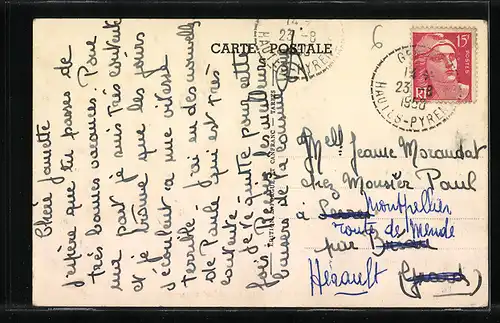 CARTE POSTALE
Chère Janette
j'espère que tu passes de
très bonnes vacances. Pour
ma part je suis très contente
et je trouve que les jours
s'écoulent à une vitesse
terrible. J'ai eu des nouvelles
de Paule qui est très
contente.
Je te quitte pour cette
fois. Reçois les meilleurs
baisers de la cousine
14
23 -8
HAUTES-PYRENEES
14
23 -8
1950
HAUTES-PYRENEES
15F
POSTES
RF
6
Melle Jeanne Morandat
chez Monsier Paul
à Montpellier
route de Mende
par
Hérault (Gard)